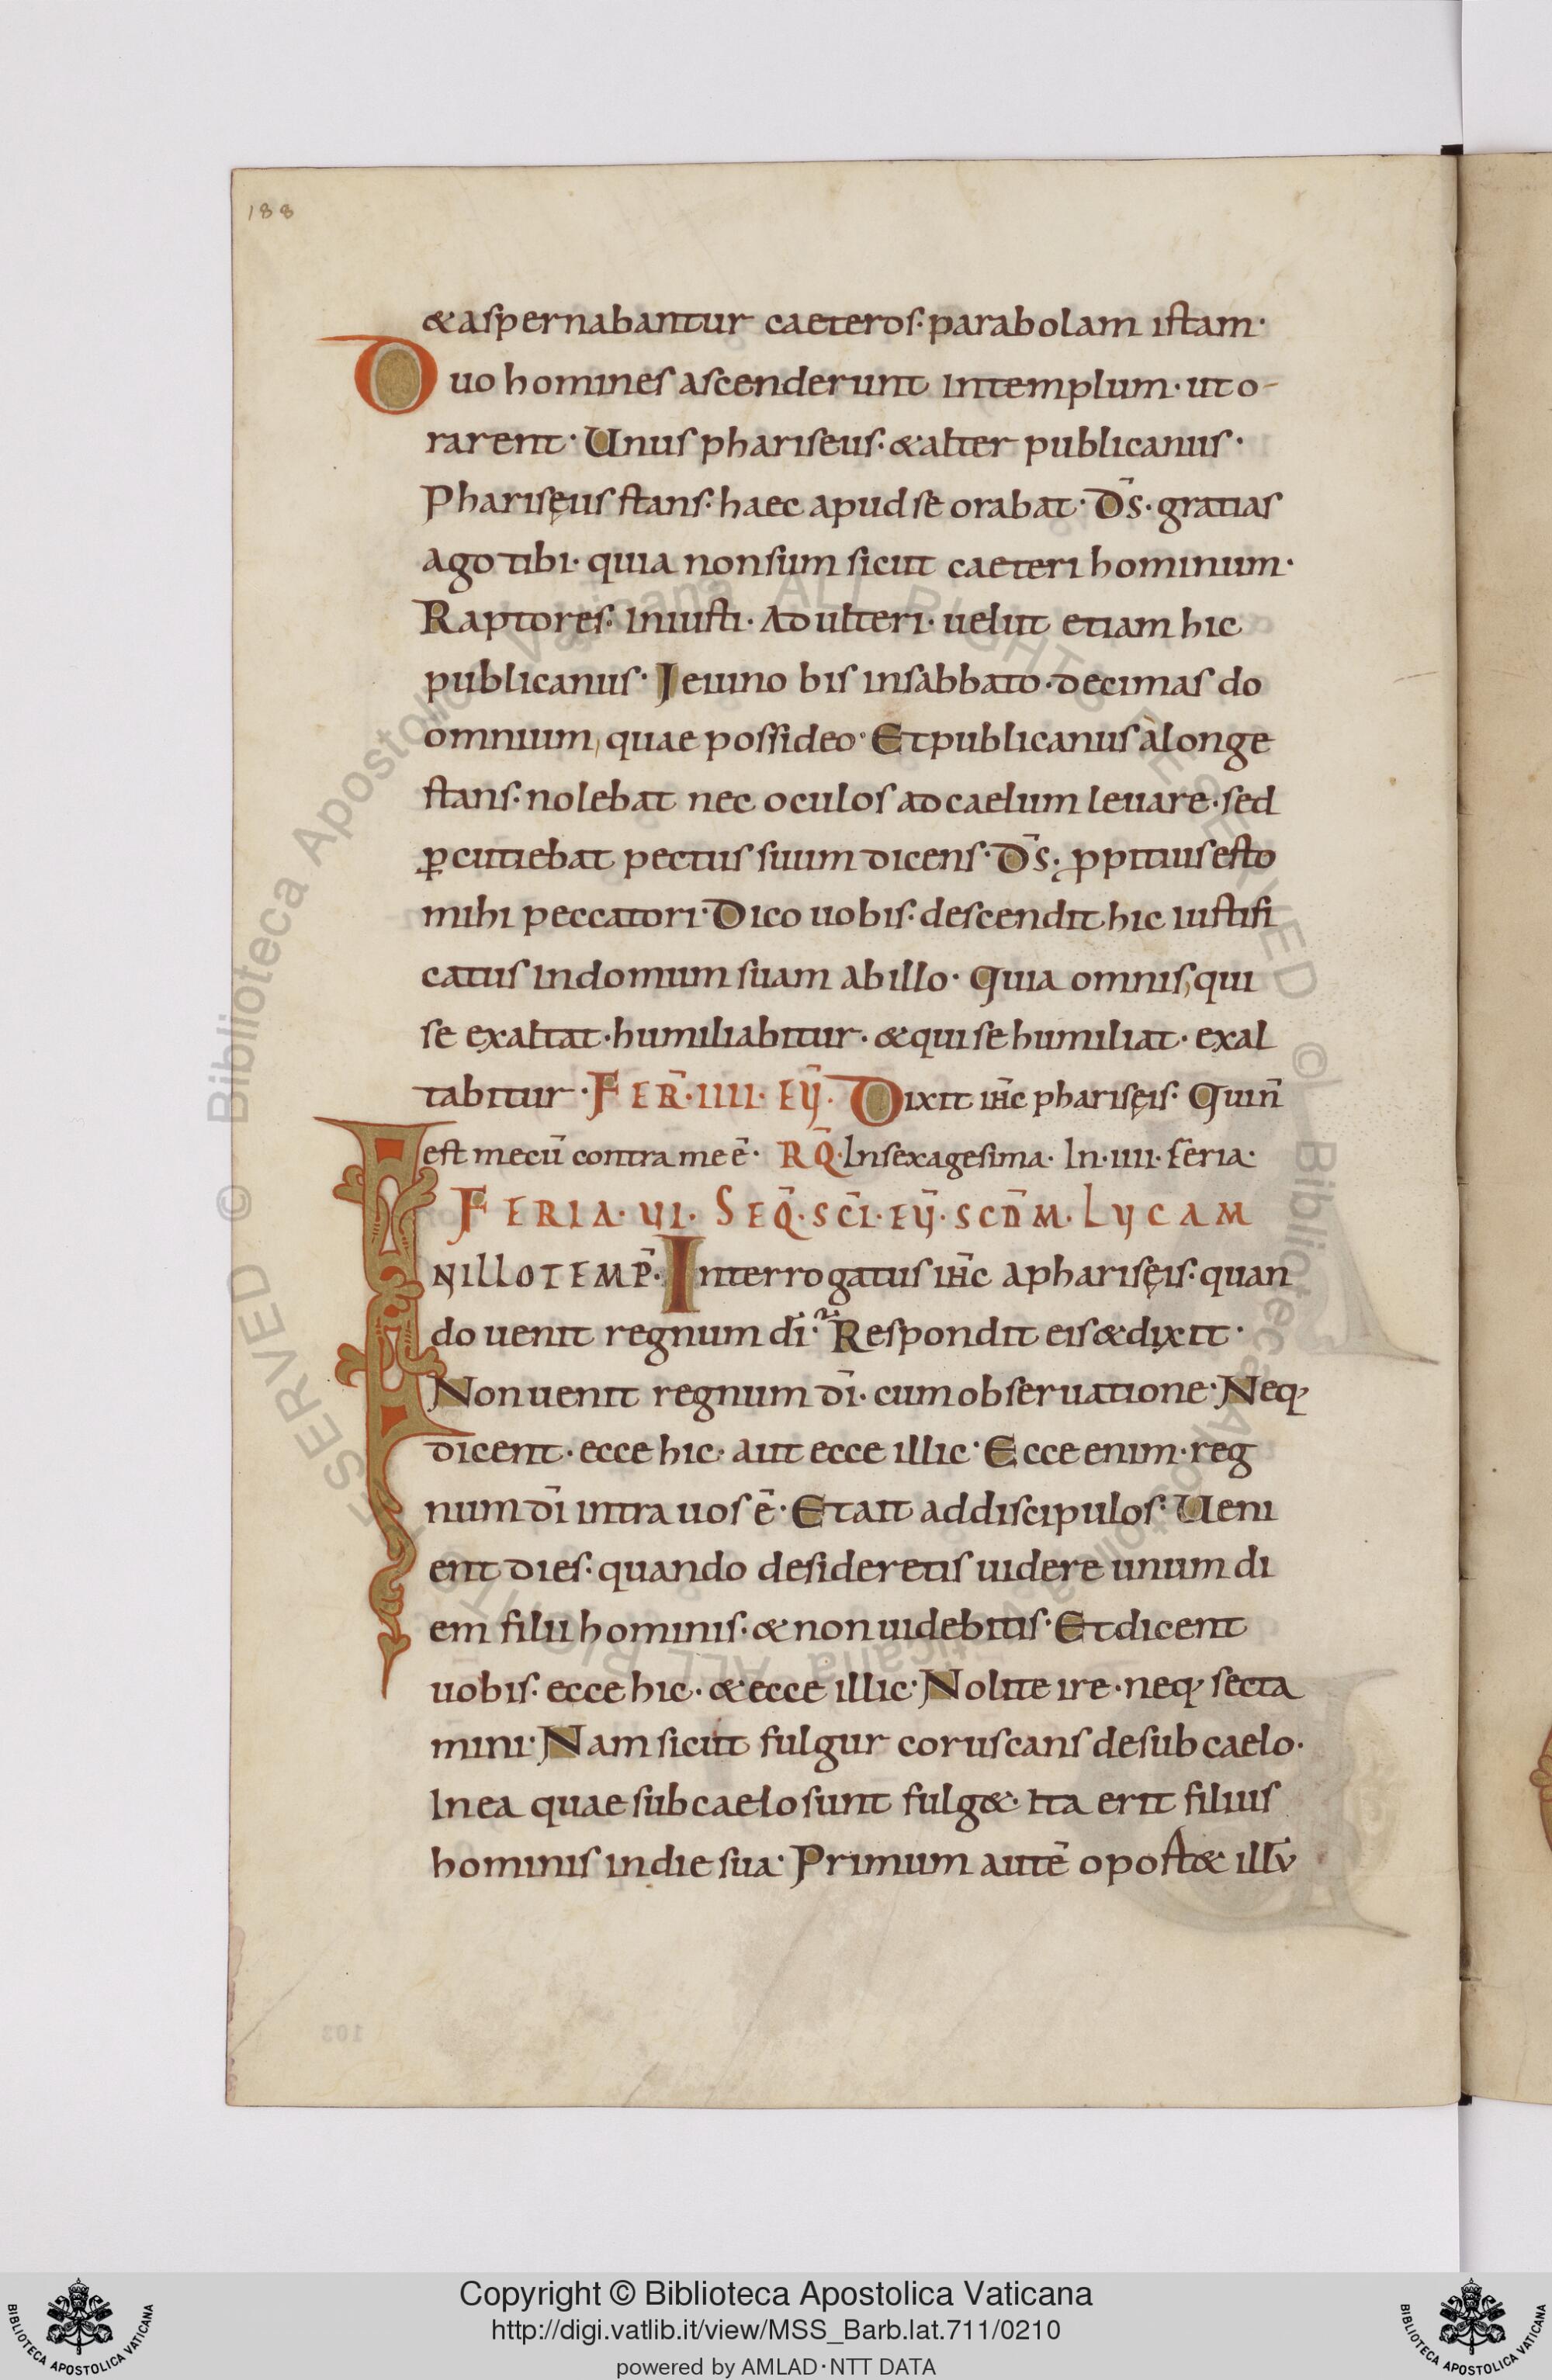 188
&aspernabantur caeteros· parabolam istam·
Duo homines ascenderunt intemplum· ut o-
rarent· Unus phariseus· &alter publicanus·
Pharisęus stans· haec apud se orabat· Ds̄· gratias
ago tibi· quia non sum sicut caeteri hominum·
Raptores· Iniusti· Adulteri· uelut etiam hic
publicanus· Ieiuno bis insabbato· decimas do
omnium, quae possideo· Et publicanus àlonge
stans· nolebat nec oculos ad caelum leuare· sed
ꝑcutiebat pectus suum dicens· Ds̄· ꝓpitius esto
mihi peccatori· Dico uobis· descendit hic iustifi
catus in domum suam ab illo· Quia omnis, qui
se exaltat· humiliabitur· &qui se humiliat· exal
tabitur· FER̄· IIII· EŪ· Dixit ih̄c pharisęis· Qui n̄
est mecū contra me ē· RQ̄· In sexagesima· In· IIII· feria·
FERIA· VI· SEQ̄· SCĪ· EŪ· SCDM̄· LUCAM
IN ILLO TEMP̄· Interrogatus ih̄c a pharisęis· quan
do uenit regnum dī· Respondit eis &dixit·
Non uenit regnum dī· cum obseruatione· Neq;
dicent· ecce hic· aut ecce illic· Ecce enim· reg
num dī intra uos ē· Et ait ad discipulos· Ueni
ent dies· quando desideretis uidere unum di
em filii hominis· &non uidebitis· Et dicent
uobis· ecce hic· &ecce illic· Nolite ire· neq; secta
mini· Nam sicut fulgur coruscans desub caelo·
In ea quae sub caelo sunt fulg&· Ita erit filius
hominis in die sua· Primum autē oport& illū
103
© Biblioteca Apostolica Vaticana ALL RIGHTS RESERVED
© Biblioteca Apostolica Vaticana ALL RIGHTS RESERVED
Copyright © Biblioteca Apostolica Vaticana
http://digi.vatlib.it/view/MSS_Barb.lat.711/0210
powered by AMLAD·NTT DATA
BIBLIOTECA APOSTOLICA VATICANA
BIBLIOTECA APOSTOLICA VATICANA